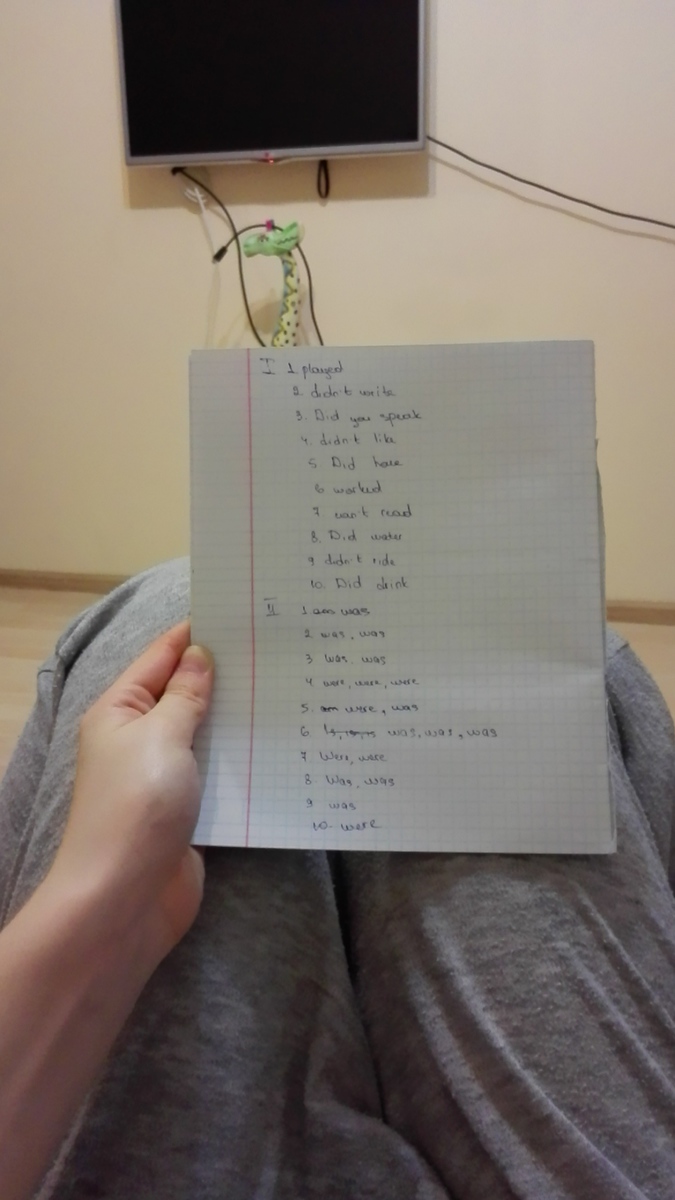 I 1. played
2. didn't write
3. Did you speak
4. didn't like
5. Did have
6 worked
7. can't read
8. Did water
9 didn't ride
10. Did drink
II 1. am was
2 was, was
3 was, was
4 were, were, were
5. am were, was
6 was, was, was
7 Were, were
8 Was, was
9 was
10. were